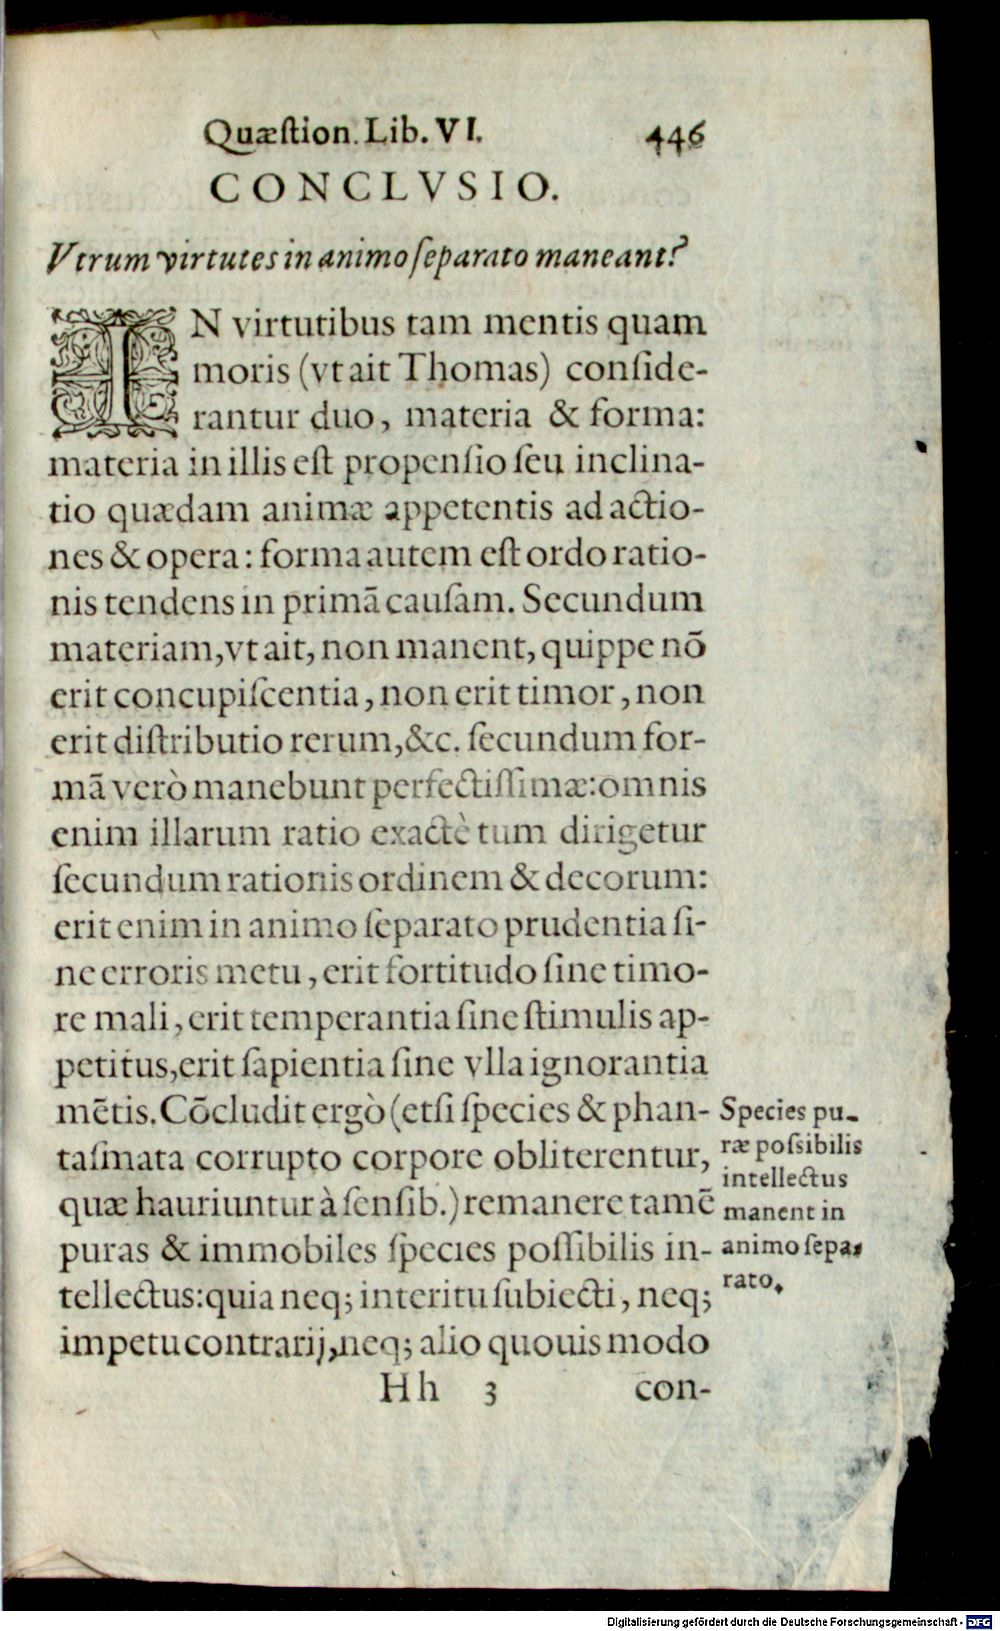 Quæſtion. Lib. VI. 446
CONCLVSIO.
Vtrum virtutes in animo ſeparato maneant?
IN virtutibus tam mentis quam
moris (vt ait Thomas) conſide-
rantur duo, materia & forma:
materia in illis eſt propenſio ſeu inclina-
tio quædam animæ appetentis ad actio-
nes & opera: forma autem eſt ordo ratio-
nis tendens in primā cauſam. Secundum
materiam, vt ait, non manent, quippe nō
erit concupiſcentia, non erit timor, non
erit diſtributio rerum, &c. ſecundum for-
mā verò manebunt perfectiſſimæ: omnis
enim illarum ratio exactè tum dirigetur
ſecundum rationis ordinem & decorum:
erit enim in animo ſeparato prudentia ſi-
ne erroris metu, erit fortitudo ſine timo-
re mali, erit temperantia ſine ſtimulis ap-
petitus, erit ſapientia ſine vlla ignorantia
mētis. Cōcludit ergò (etſi ſpecies & phan-
taſmata corrupto corpore obliterentur,
quæ hauriuntur à ſenſib.) remanere tamē
puras & immobiles ſpecies poſſibilis in-
tellectus: quia neq; interitu ſubiecti, neq;
impetu contrarij, neq; alio quouis modo
Species pu-
ræ poſsibilis
intellectus
manent in
animo ſepa-
rato.
Hh 3 con-
Digitalisierung gefördert durch die Deutsche Forschungsgemeinschaft - DFG